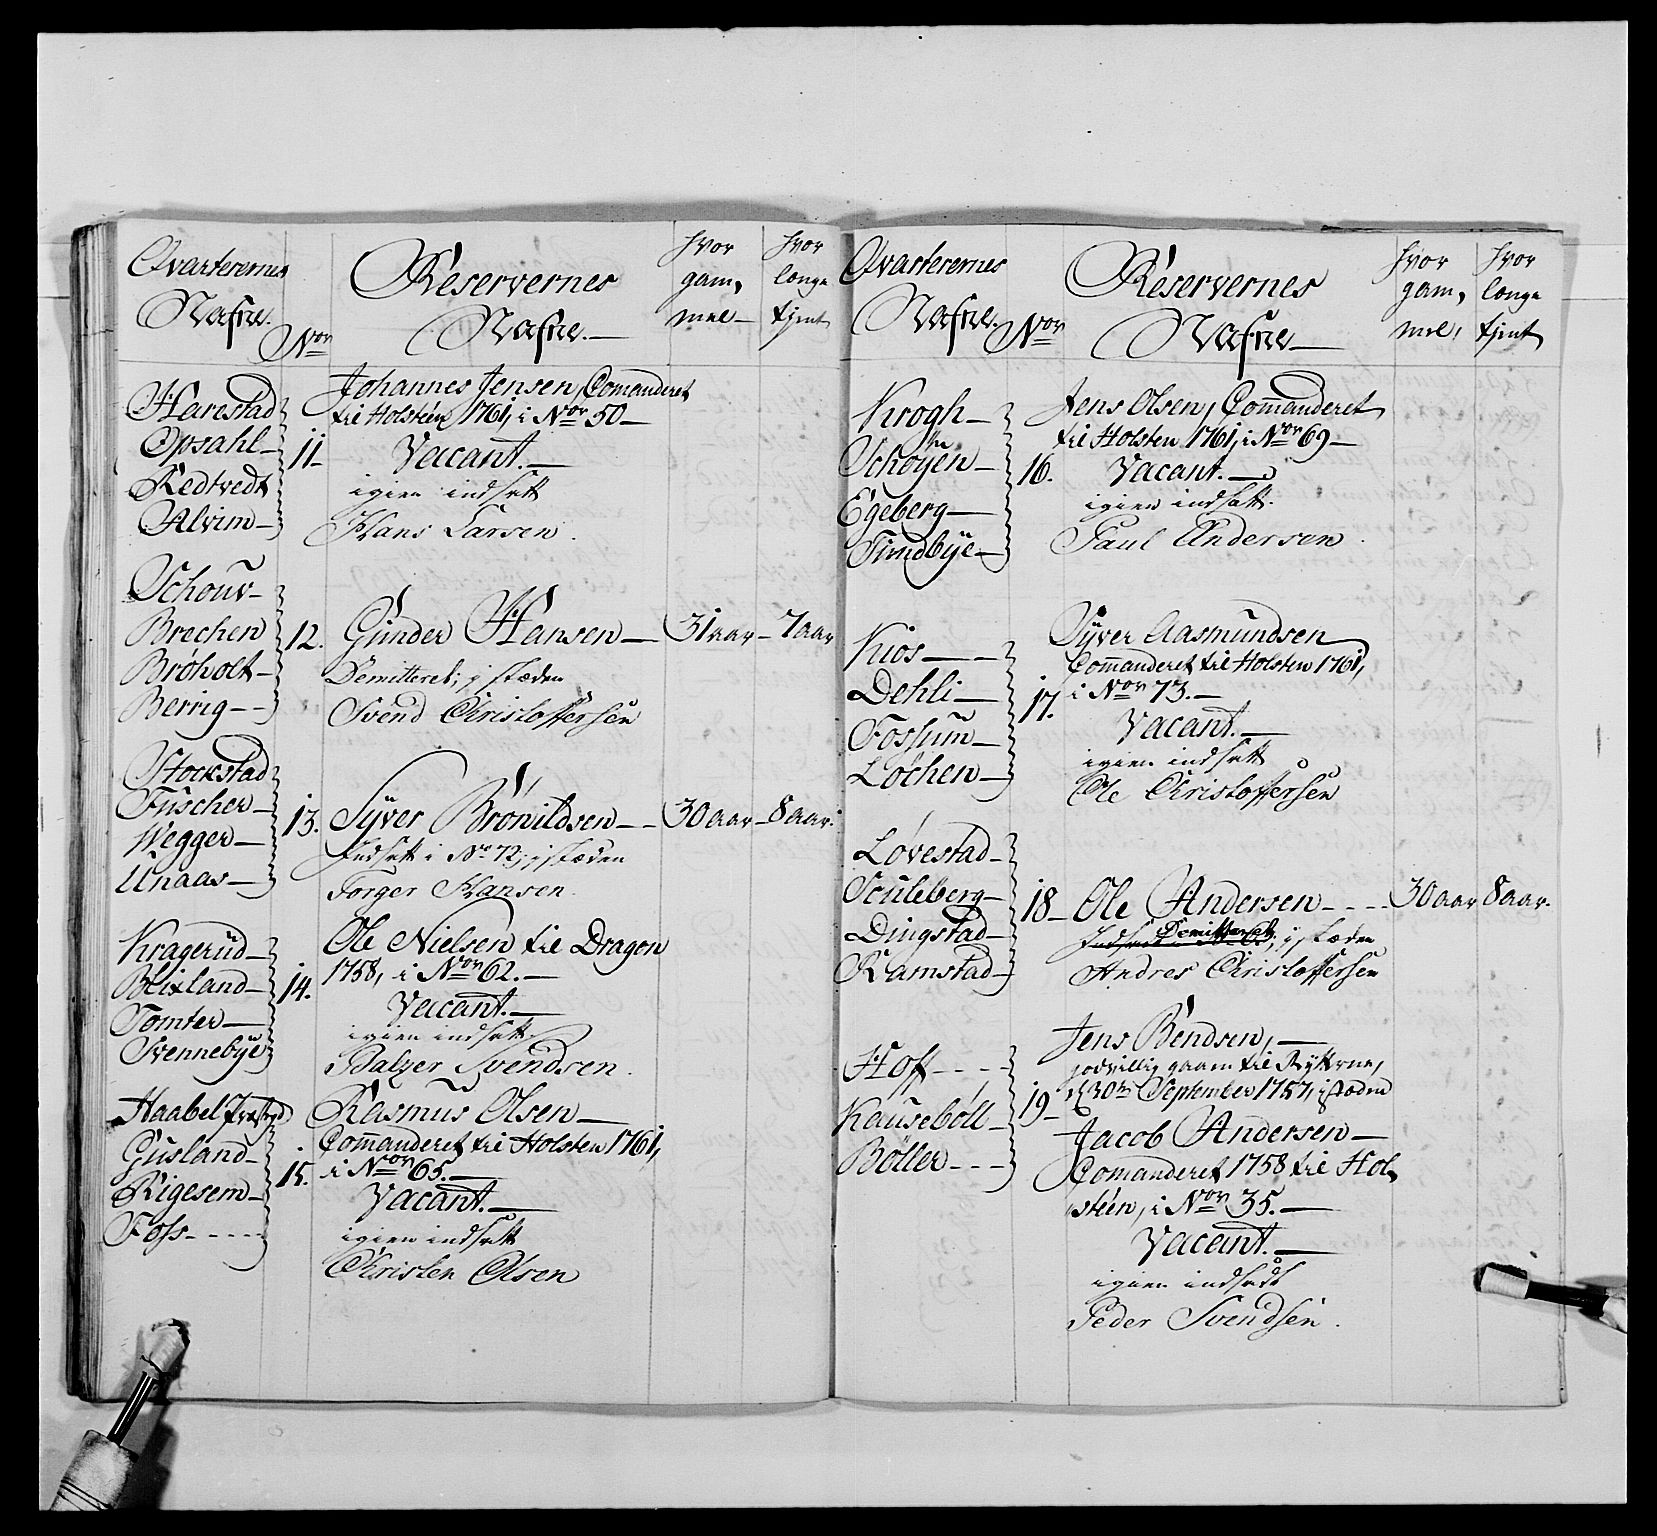 Qvarterernes
Nafne.
Nor
Reservernes
Nafne.—
hvor
gam,
mel—
hvor
længe
tjent
Harestad
Opsahl—
Redtvedt
Alvim—
11—
Johannes Jensen, Comanderet
til Holsteen 1761, i Nor 50—
Vacant.—
igien indsatt
Hans Larsen.
Schouv—
Brechen
Brøholt—
Berrig--
12.
Gunder Hansen—
31 aar—
7 aar
Demitteret; j stæden
Svend Christoffersen
Stockstad
Fuscher—
Wegger—
Unaas—
13.
Syver Brønildsen—
30 aar—
8 aar.
Indsatt i No 72; j stæden
Torger Hansen.
Kragerud—
Blixland—
Tomter—
Svennebye
14.
Ole Nielsen til Dragon
1758, i Nor 62.—
Vacant.—
igien indsatt
Balzer Svendsen.
Haabel Præstgd
Gusland—
Rigesem—
Foss-----
15.
Rasmus Olsen—
Commanderet til Holsten 1761,
i Nor 65.—
Vacant.—
igien indsatt
Christen Olsen
Qvarterernes
Nafne.
Nor
Reservernes
Nafne—
hvor
gam,
mel,
hvor
længe
tjent
Krogh—
Schøyen—
Egeberg—
Timdbye—
16.
Jens Olsen, Commanderet
til Holsten 1761, i Nor 69—
Vacant.—
igien indsatt.
Paul Andersen.
Kios—
Dehli—
Fossum—
Løchen—
17.
Syver Aasmundsen
Commanderet til Holsten 1761,
i Nor 73.—
Vacant.—
igien indsatt
Ole Christoffersen
Løvestad—
Sculeberg—
Dingstad—
Ramstad—
18—
Ole Andersen----
30 aar
8 aar.
Demitteret; j stæden
Andres Christoffersen
Hoff----
Kausebøll—
Bøller---
19—
Jens Bendsen,—
godvillig gaaen til Rytterne,
d 30te September 1757, i stæden
Jacob Andersen—
Comanderet 1758 til Hol,
steen, i Nor 35.—
Vacant.—
igien indsadt
Peder Svendsen.